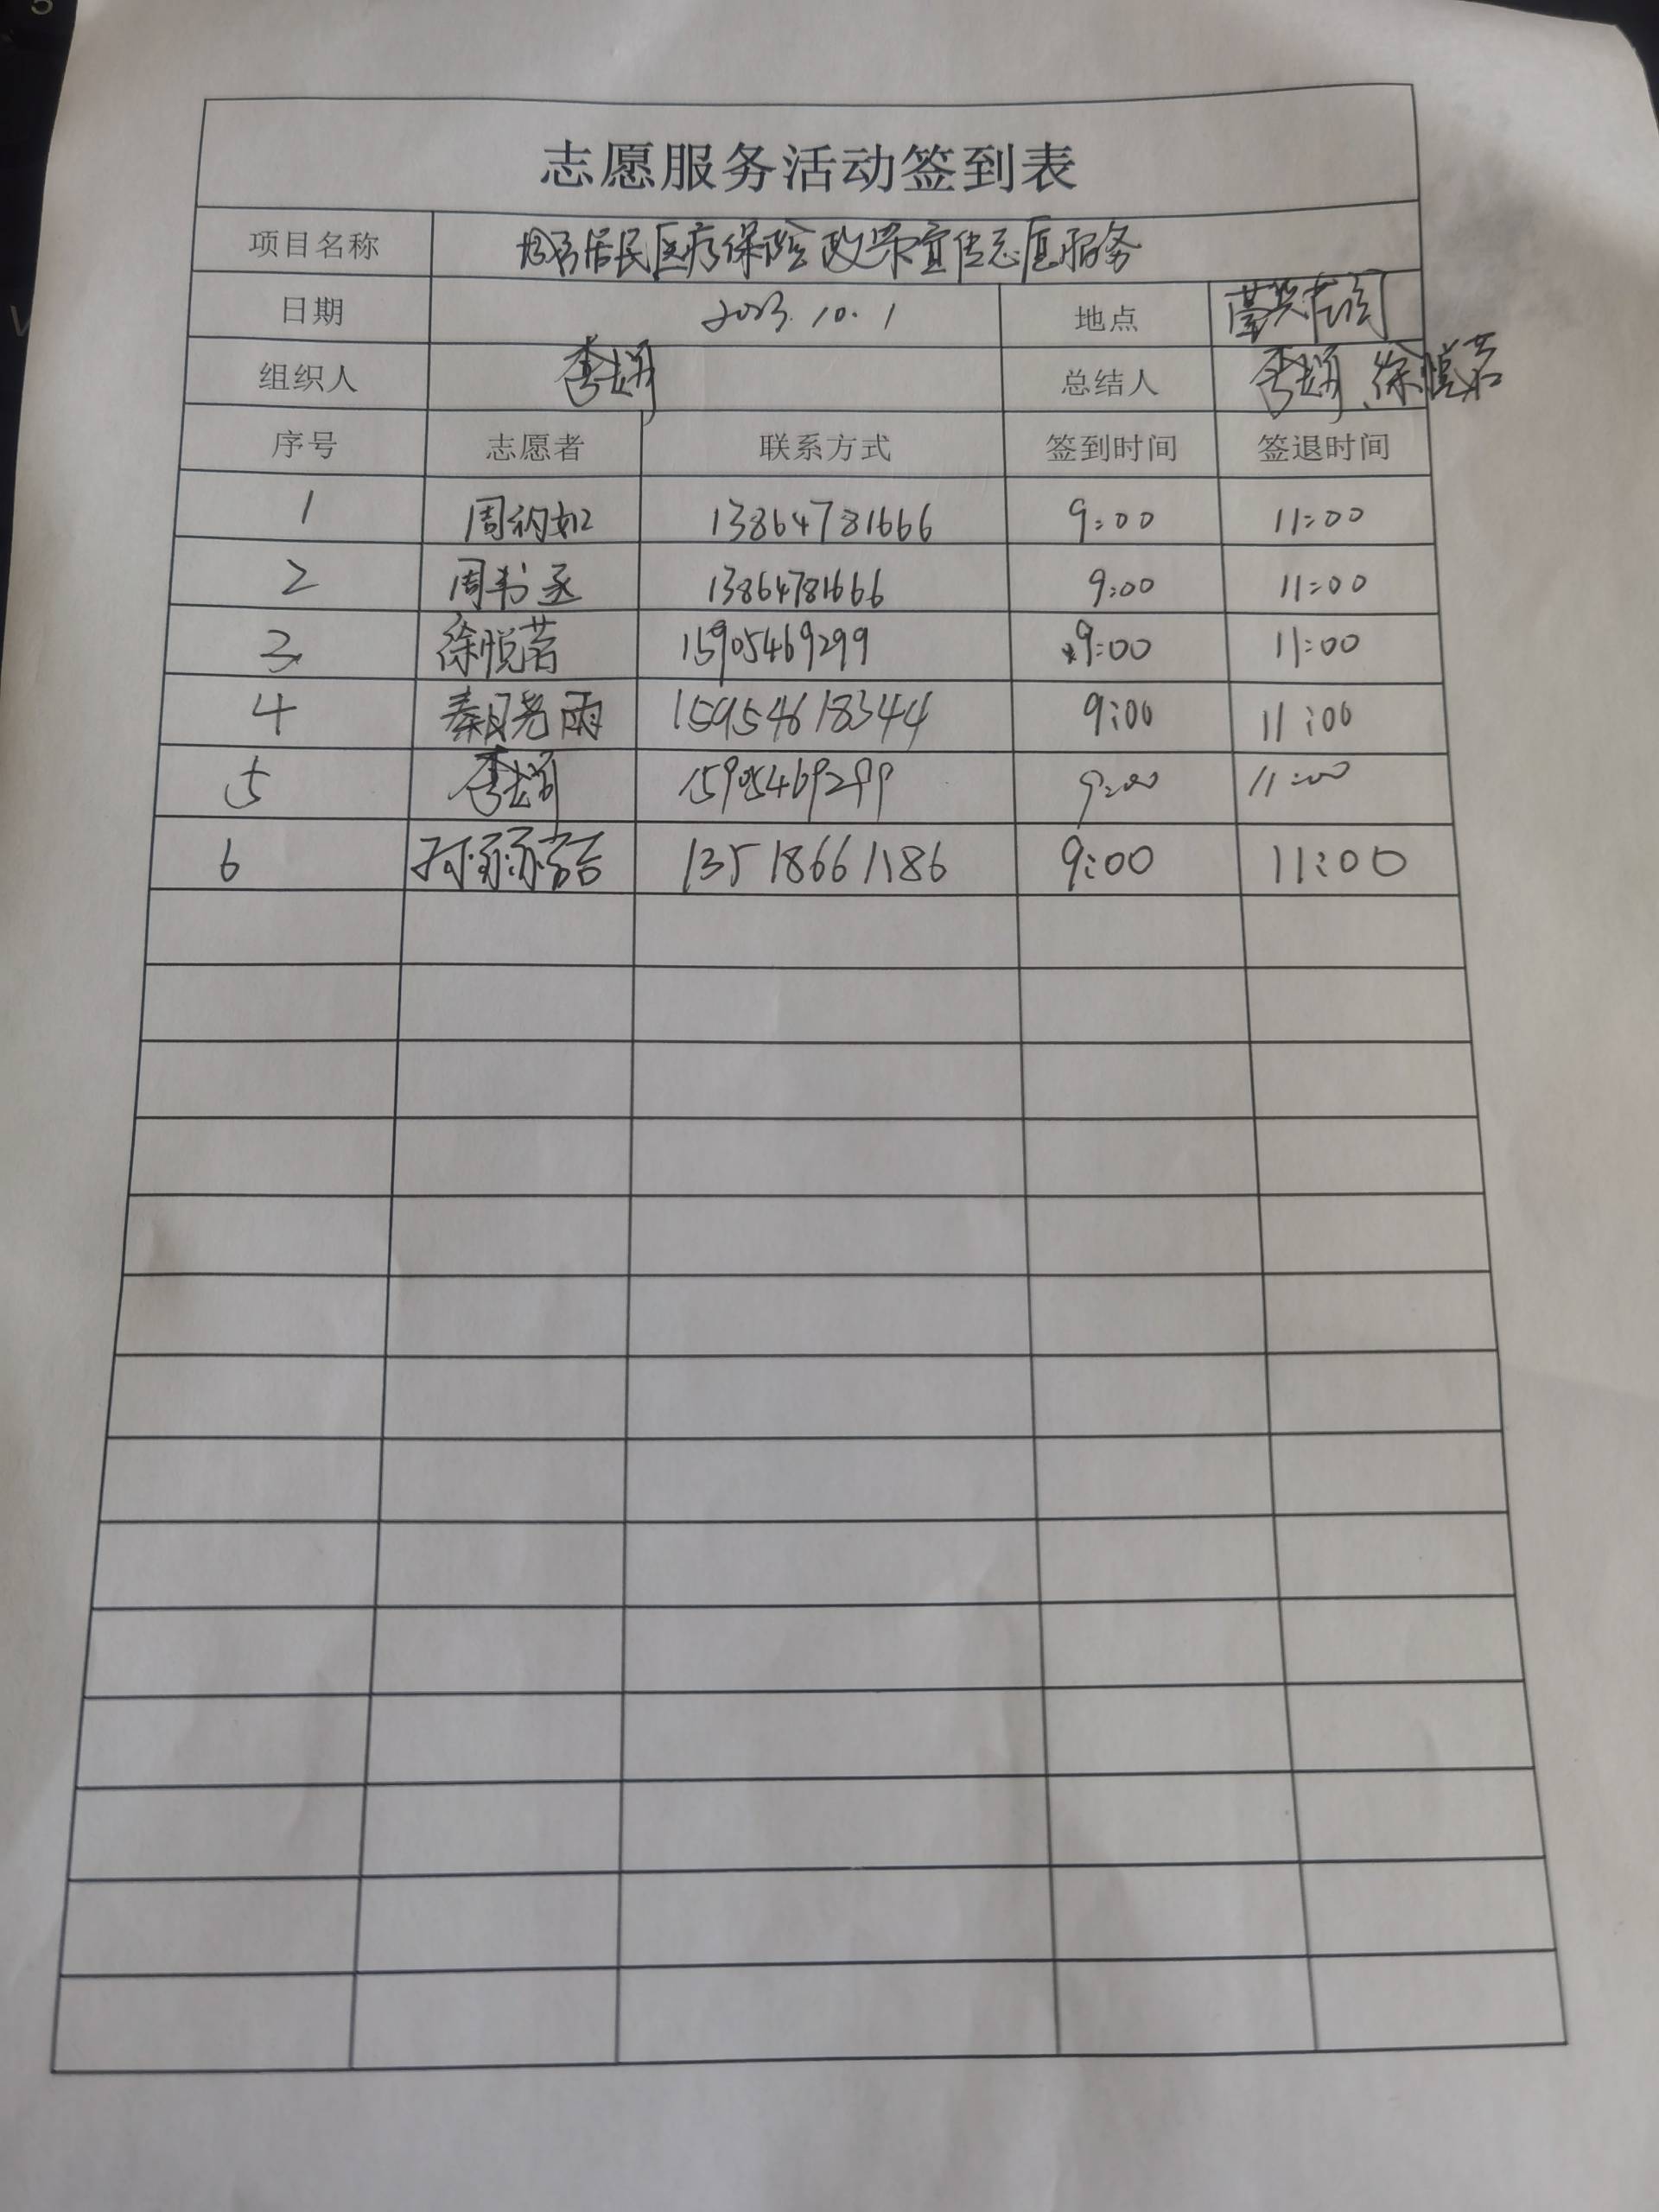 志愿服务活动签到表
项目名称 居民医疗保险政策宣传志愿服务
日期 2023.10.1 地点
组织人 李 总结人 李 徐悦若
序号 志愿者 联系方式 签到时间 签退时间
1 周 如 13864781666 9:00 11:00
2 周书丞 13864781666 9:00 11:00
3 徐悦若 15905469299 9:00 11:00
4 秦 雨 15954618344 9:00 11:00
5 李 15905469299 9:00 11:00
6 13518661186 9:00 11:00